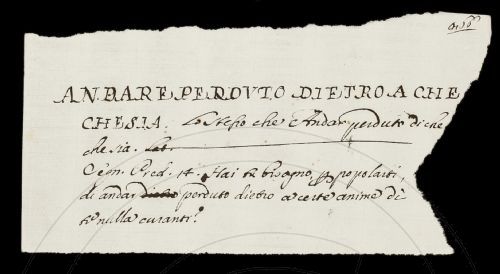 ANDARE PERDUTO DIETRO A CHE
CHESIA. Lo stesso che Andar perduto di che
che sia.
Cegn. Pred. 14. Hai tu bisogno, popolaiti,
di andar dietro perduto dietro a certe anime di
te nulla curanti?